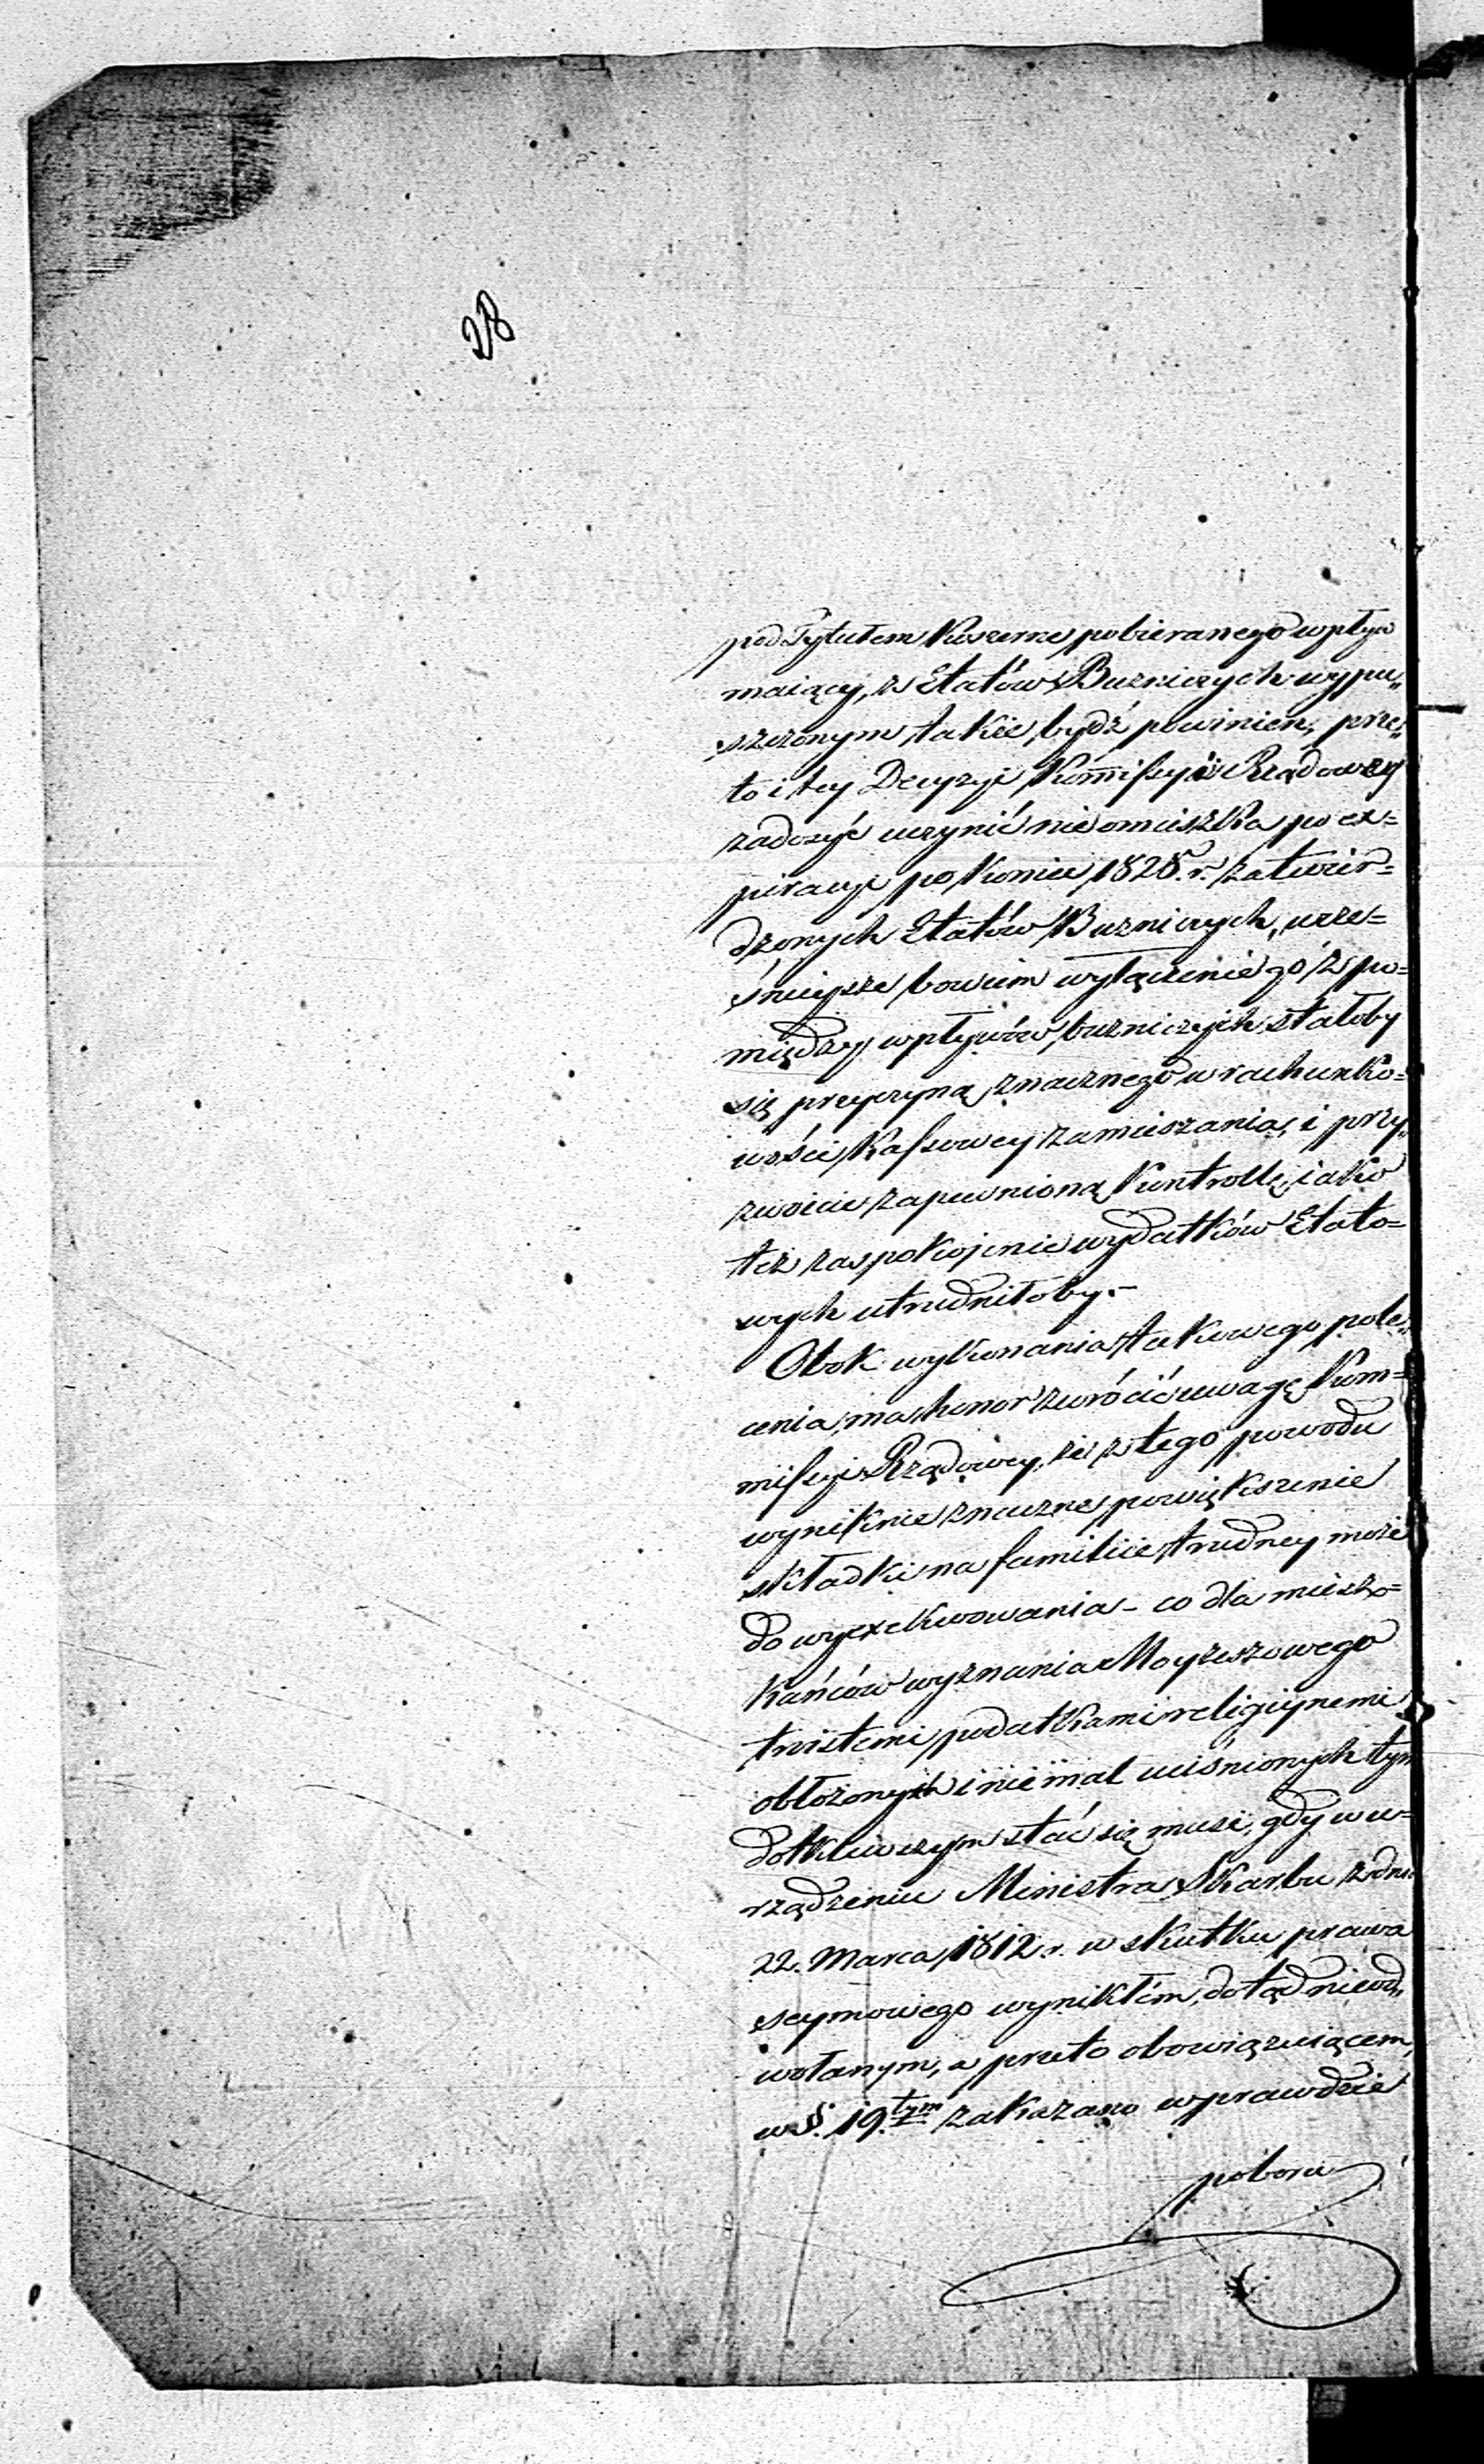 28
pod Tytułem Koszerne pobieranego wpływ
maiący, z Etatów Buzniczych wypu„
szczonym także bydź powinien, prze„
to i tey Decyzyi Kommissyi Rządowey
zadosyć uczynić nieomieszka po ex=
piracyi po koniec 1828. r. zatwier=
dzonych Etatów Buzniczych, wcze=
śnieysze bowiem wyłączenie go z po=
między wpływów buzniczych stałoby
się przyczyną znacznego w rachunko=
wości Kassowey zamieszania, i przy„
zwoicie zapewnioną Kontrollę, iako
też zaspokojenie wydatków Etato=
wych utrudniłoby.–
Obok wykonania takowego pole„
cenia, ma honor zwrócić uwagę Kom=
missyi Rządowey, że z tego powodu
wyniknie znaczne powiększenie
składki na familiie, trudney może
do wyexekwowania – co dla miesz=
kańców wyznania Moyżeszowego
troistemi podatkami religiynemi
obłożonych i nieinal uciśnionych tym
dotkliwszym stać się musi, gdy w u=
rządzeniu Ministra Skarbu z dnia
22. Marca 1812 r. w skutku prawa
seymowego wynikłém, dotąd nieod„
wołanym, a przeto obowiązuiącem,
w §. 19.tym zakazano wprawdzie
poboru